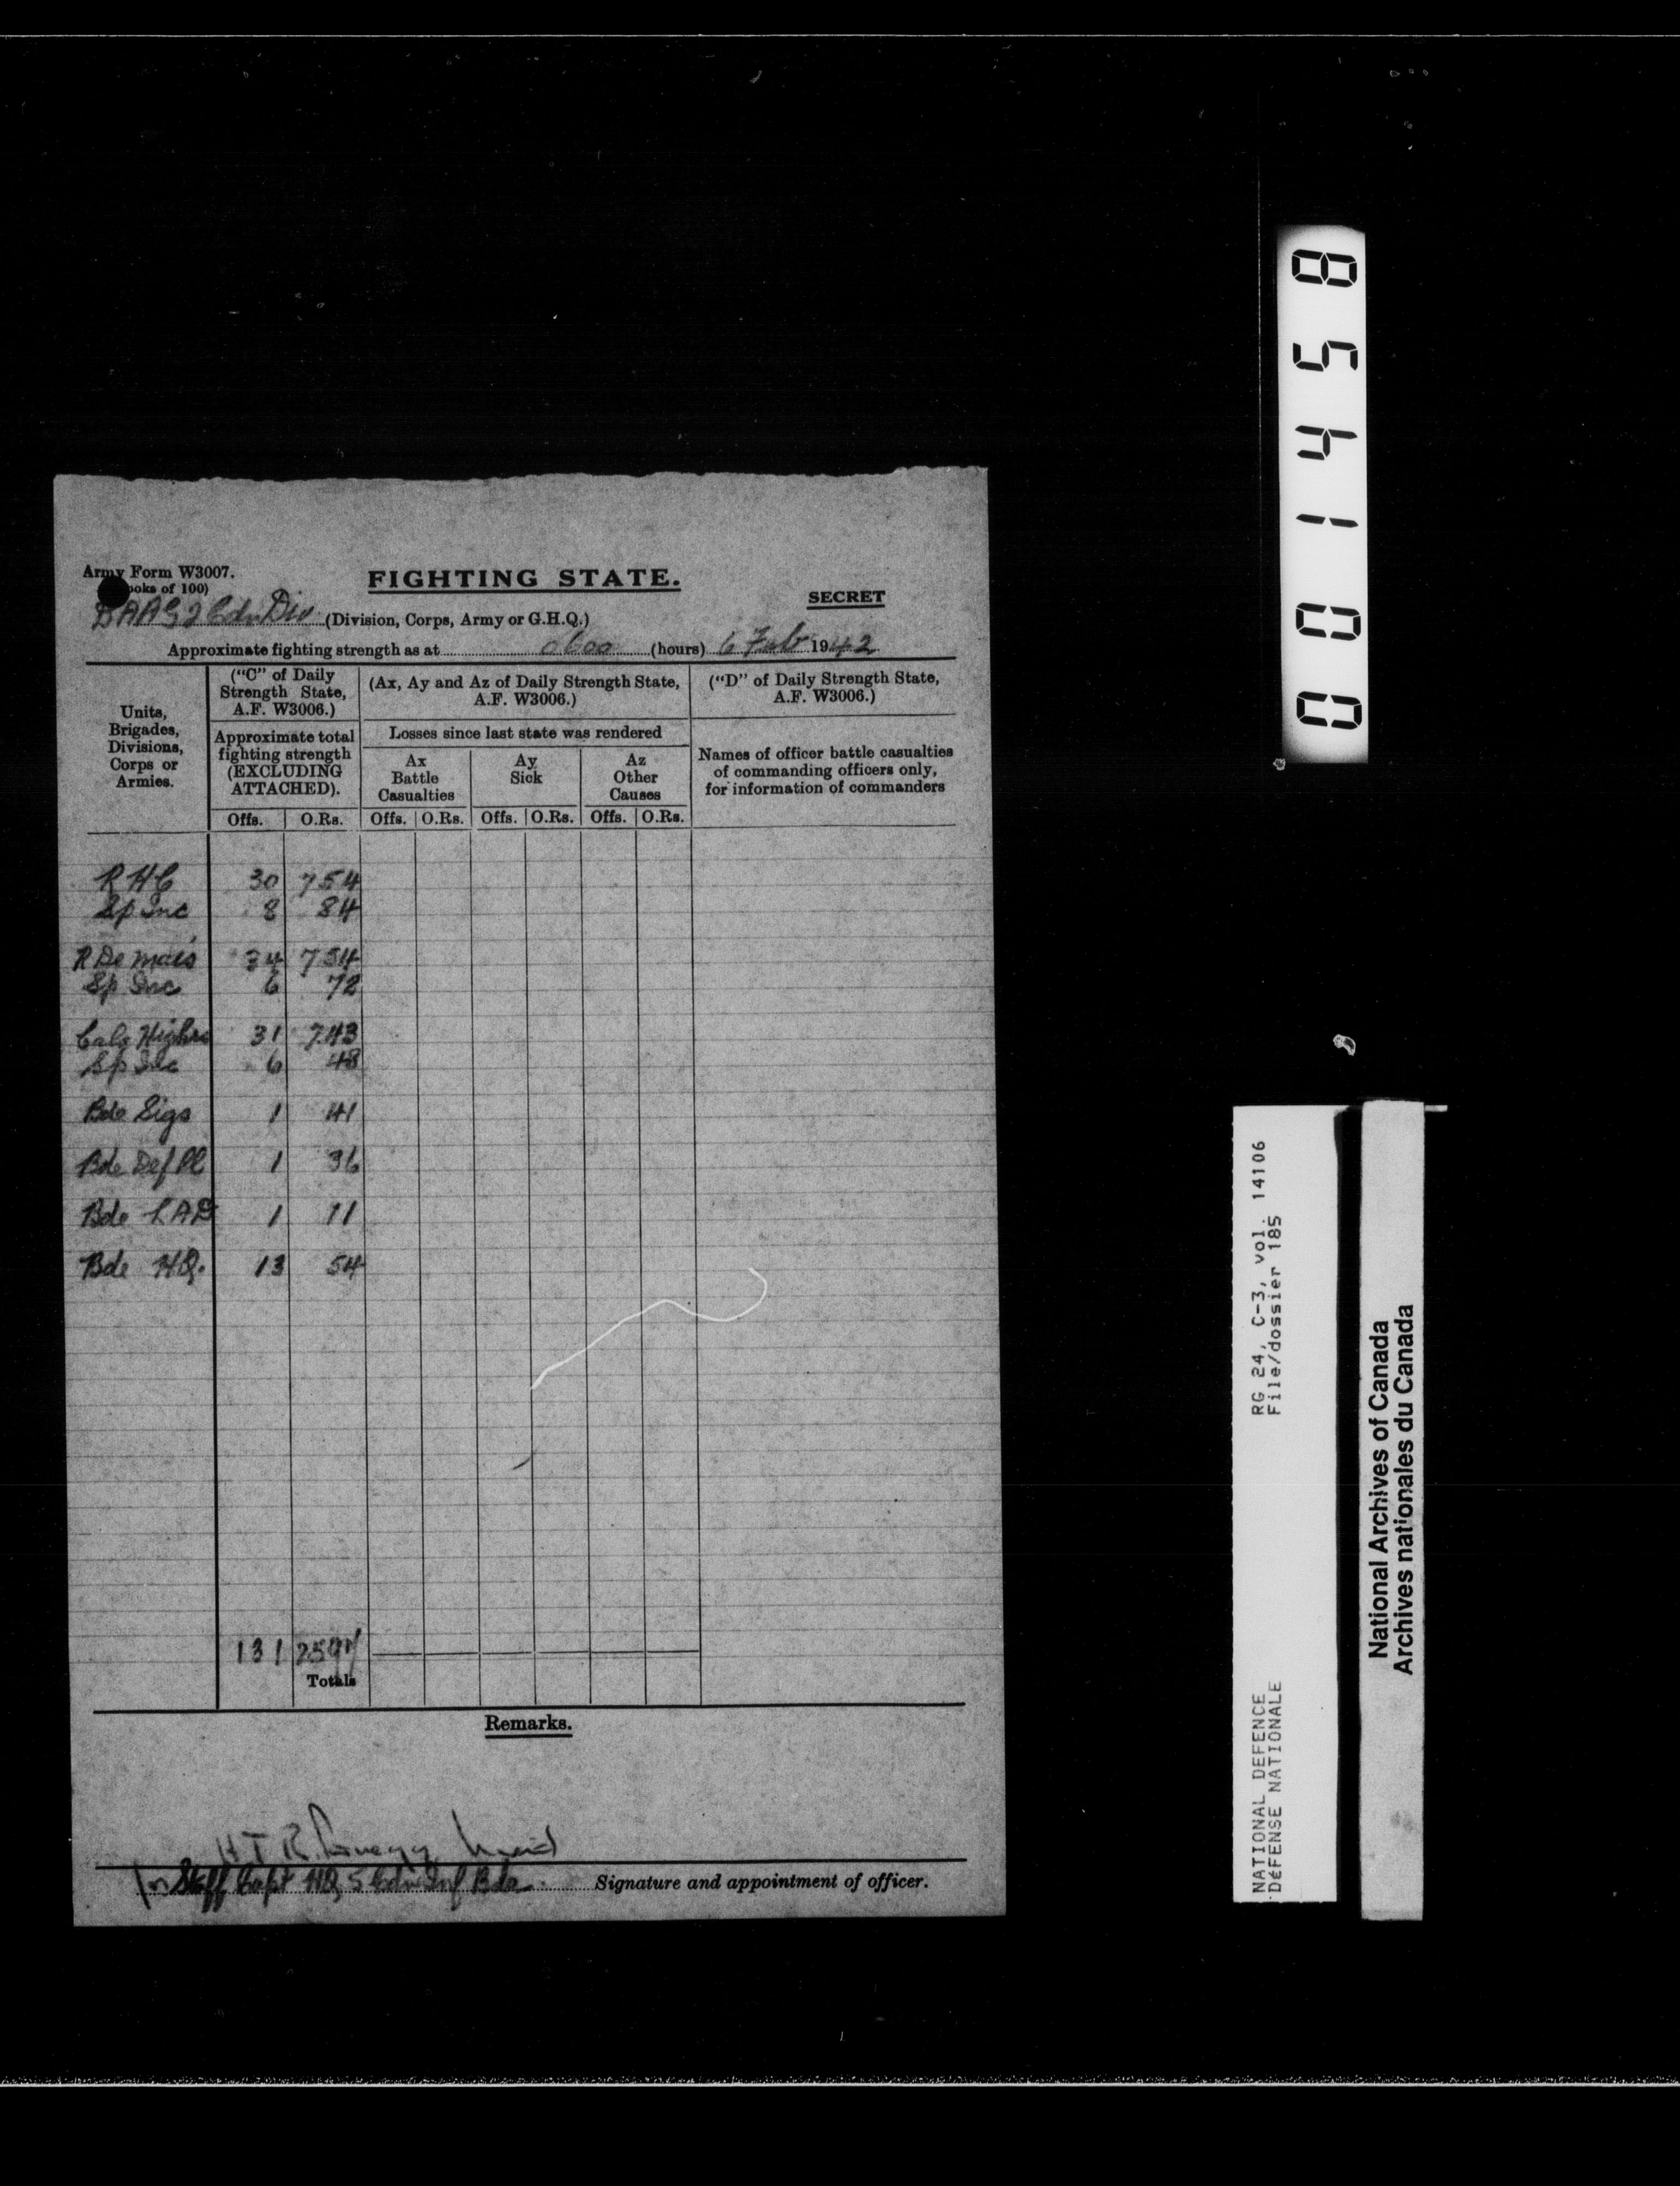 Army Form W3007.
ooks of 100)
FIGHTING STATE.
SECRET
DAAG 2 Cdn Div (Division, Corps, Army or G.H.Q.)
Approximate fighting strength as at 0600 (hours) 6 Feb 1942
Units, Brigades, Divisions, Corps or Armies.
("C" of Daily Strength State, A.F. W3006.)
(Ax, Ay and Az of Daily Strength State, A.F. W3006.)
("D" of Daily Strength State, A.F. W3006.)
Approximate total fighting strength (EXCLUDING ATTACHED).
Losses since last state was rendered
Names of officer battle casualties of commanding officers only, for information of commanders
Ax Battle Casualties
Ay Sick
Az Other Causes
Offs. O.Rs. Offs. O.Rs. Offs. O.Rs. Offs. O.Rs.
RHC 30 754
Sp Inc 8 84
R De Mais 34 754
Sp Inc 6 72
Calg Highrs 31 743
Sp Inc 6 48
Bde Sigs 1 41
Bde Def Pl 1 36
Bde LAD 1 11
Bde HQ. 13 54
131 2597
Totals
Remarks.
H T R
for Staff Capt HQ 5 Cdn Inf Bde. Signature and appointment of officer.
001458
NATIONAL DEFENCE RG 24, C-3, vol. 14106
DÉFENSE NATIONALE File/dossier 185
National Archives of Canada
Archives nationales du Canada